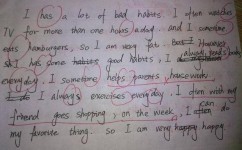 I has a lot of bad habits. I often watches
TV for more than one hours a day. and I sometime
eats hamburgers, so I am very fat. But
I has some good habits, I already read
everyday. I sometime helps parents housework
I always exercises everyday. I often with my
friend goes shopping, on the week, I can do
my favorite thing. so I am very happy happy